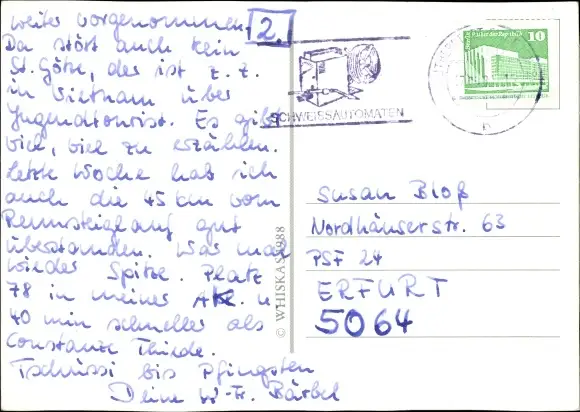 weiter vorgenommen.
2.
Da stört auch kein
St. Götz, der ist z. Z.
in Vietnam über
Jugendtourist. Es gibt
viel, viel zu erzählen.
Letzte Woche hab ich
auch die 45 km vom
Rennsteiglauf gut
überstanden. War mal
wieder Spitze. Platz
78 in meiner AK u.
40 min schneller als
Constanze Thiede.
Tschüssi bis Pfingsten
Deine W-Fr. Bärbel
SCHWEISSAUTOMATEN
10
© WHISKA 1988
Susan Bloß
Nordhäuserstr. 63
PSF 24
ERFURT
5064